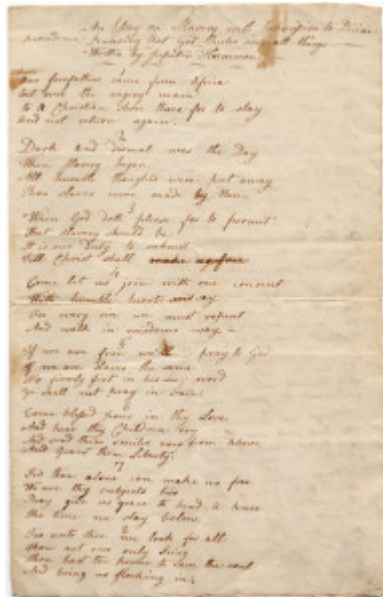 An Essay on Slavery with submission to Divine
providence knowing that God Rules over all things
Written by Jupiter Hammon
Our forefathers came from Africa
tost over the raging main
to a Christian shore there for to stay
and not return again.
2
Dark and dismal was the Day
When slavery began
All humble thoughts were put away
Then slaves were made by Man.
3
When God doth please for to permit
That slavery should be
It is our Duty to submit
Till Christ shall make us free
4
Come let us join with one consent
With humble hearts and say
For every sin we must repent
And walk in wisdoms way
If we are free we'll pray to God
If we are slaves the same
Its firmly fixt in his word
Ye shall not pray in vain.
Come blessed Jesus in thy Love
And hear thy Children cry
And send them smiles now from above
And grant them Liberty.
7
Tis thou alone can make us free
We are thy subjects two
Pray give us grace to bend a knee
The time we stay below
Tis unto thee we look for all
Thou art our only King
Thou hast the power to save the soul
And bring us flocking in